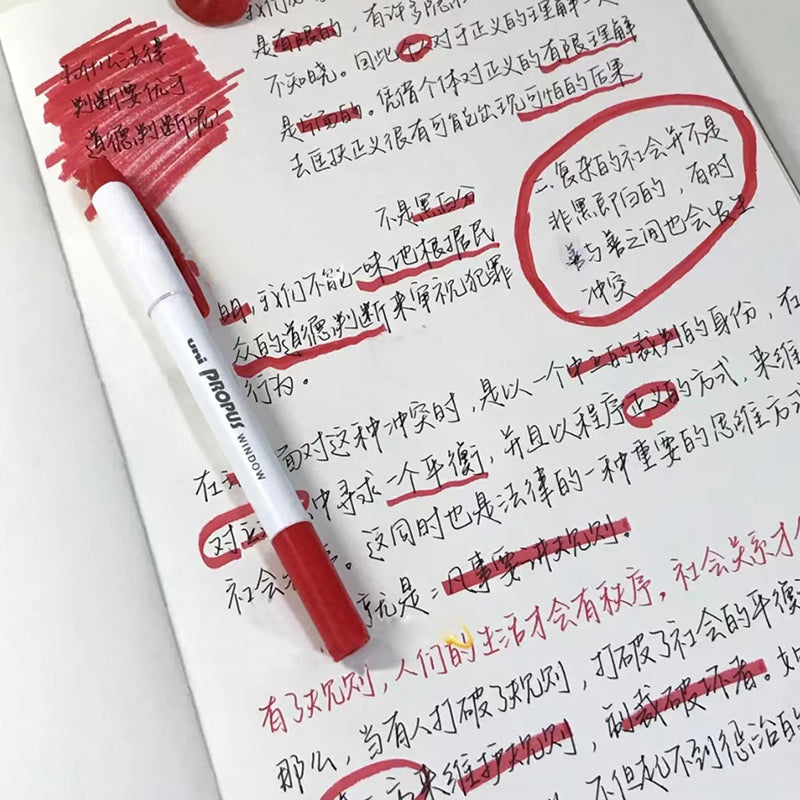 为什么法律
判断要优于
道德判断呢?
是有限的,有许多
不知晓。因此个人对于正义的理解
是片面的。凭借个体对正义的有限理解
去匡扶正义很有可能出现可怕的后果
二、复杂的社会并不是
非黑即白的,有时
善与善之间也会发生
冲突
不是黑白分
明,我们不能一味地根据民
众的道德判断来审视犯罪
行为。
面对这种冲突时,是以一个中立的裁判的身份,在
中寻求一个平衡,并且以程序正义的方式,来维
社会 。这同时也是法律的一种重要的思维方式
就是:凡事要讲规则。
有了规则,人们的生活才会有秩序,社会关系才
那么,当有人打破了规则,打破了社会的平衡
来维护规则,制裁破坏者。如
不但起不到惩治的
uni PROPUS WINDOW